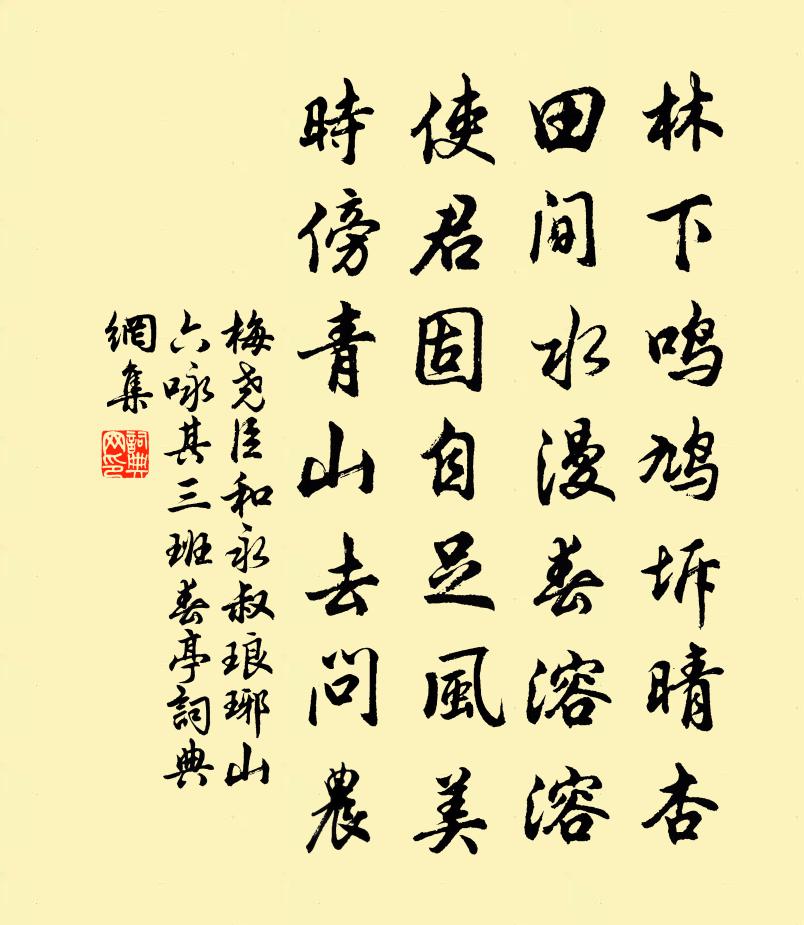 林下鸣鸠坼晴杏
田间水漫春溶溶
使君固自足風美
時傍青山去问農
梅尧臣和永叔琅琊山
六咏其三班春亭詞典
網集
詞典網印